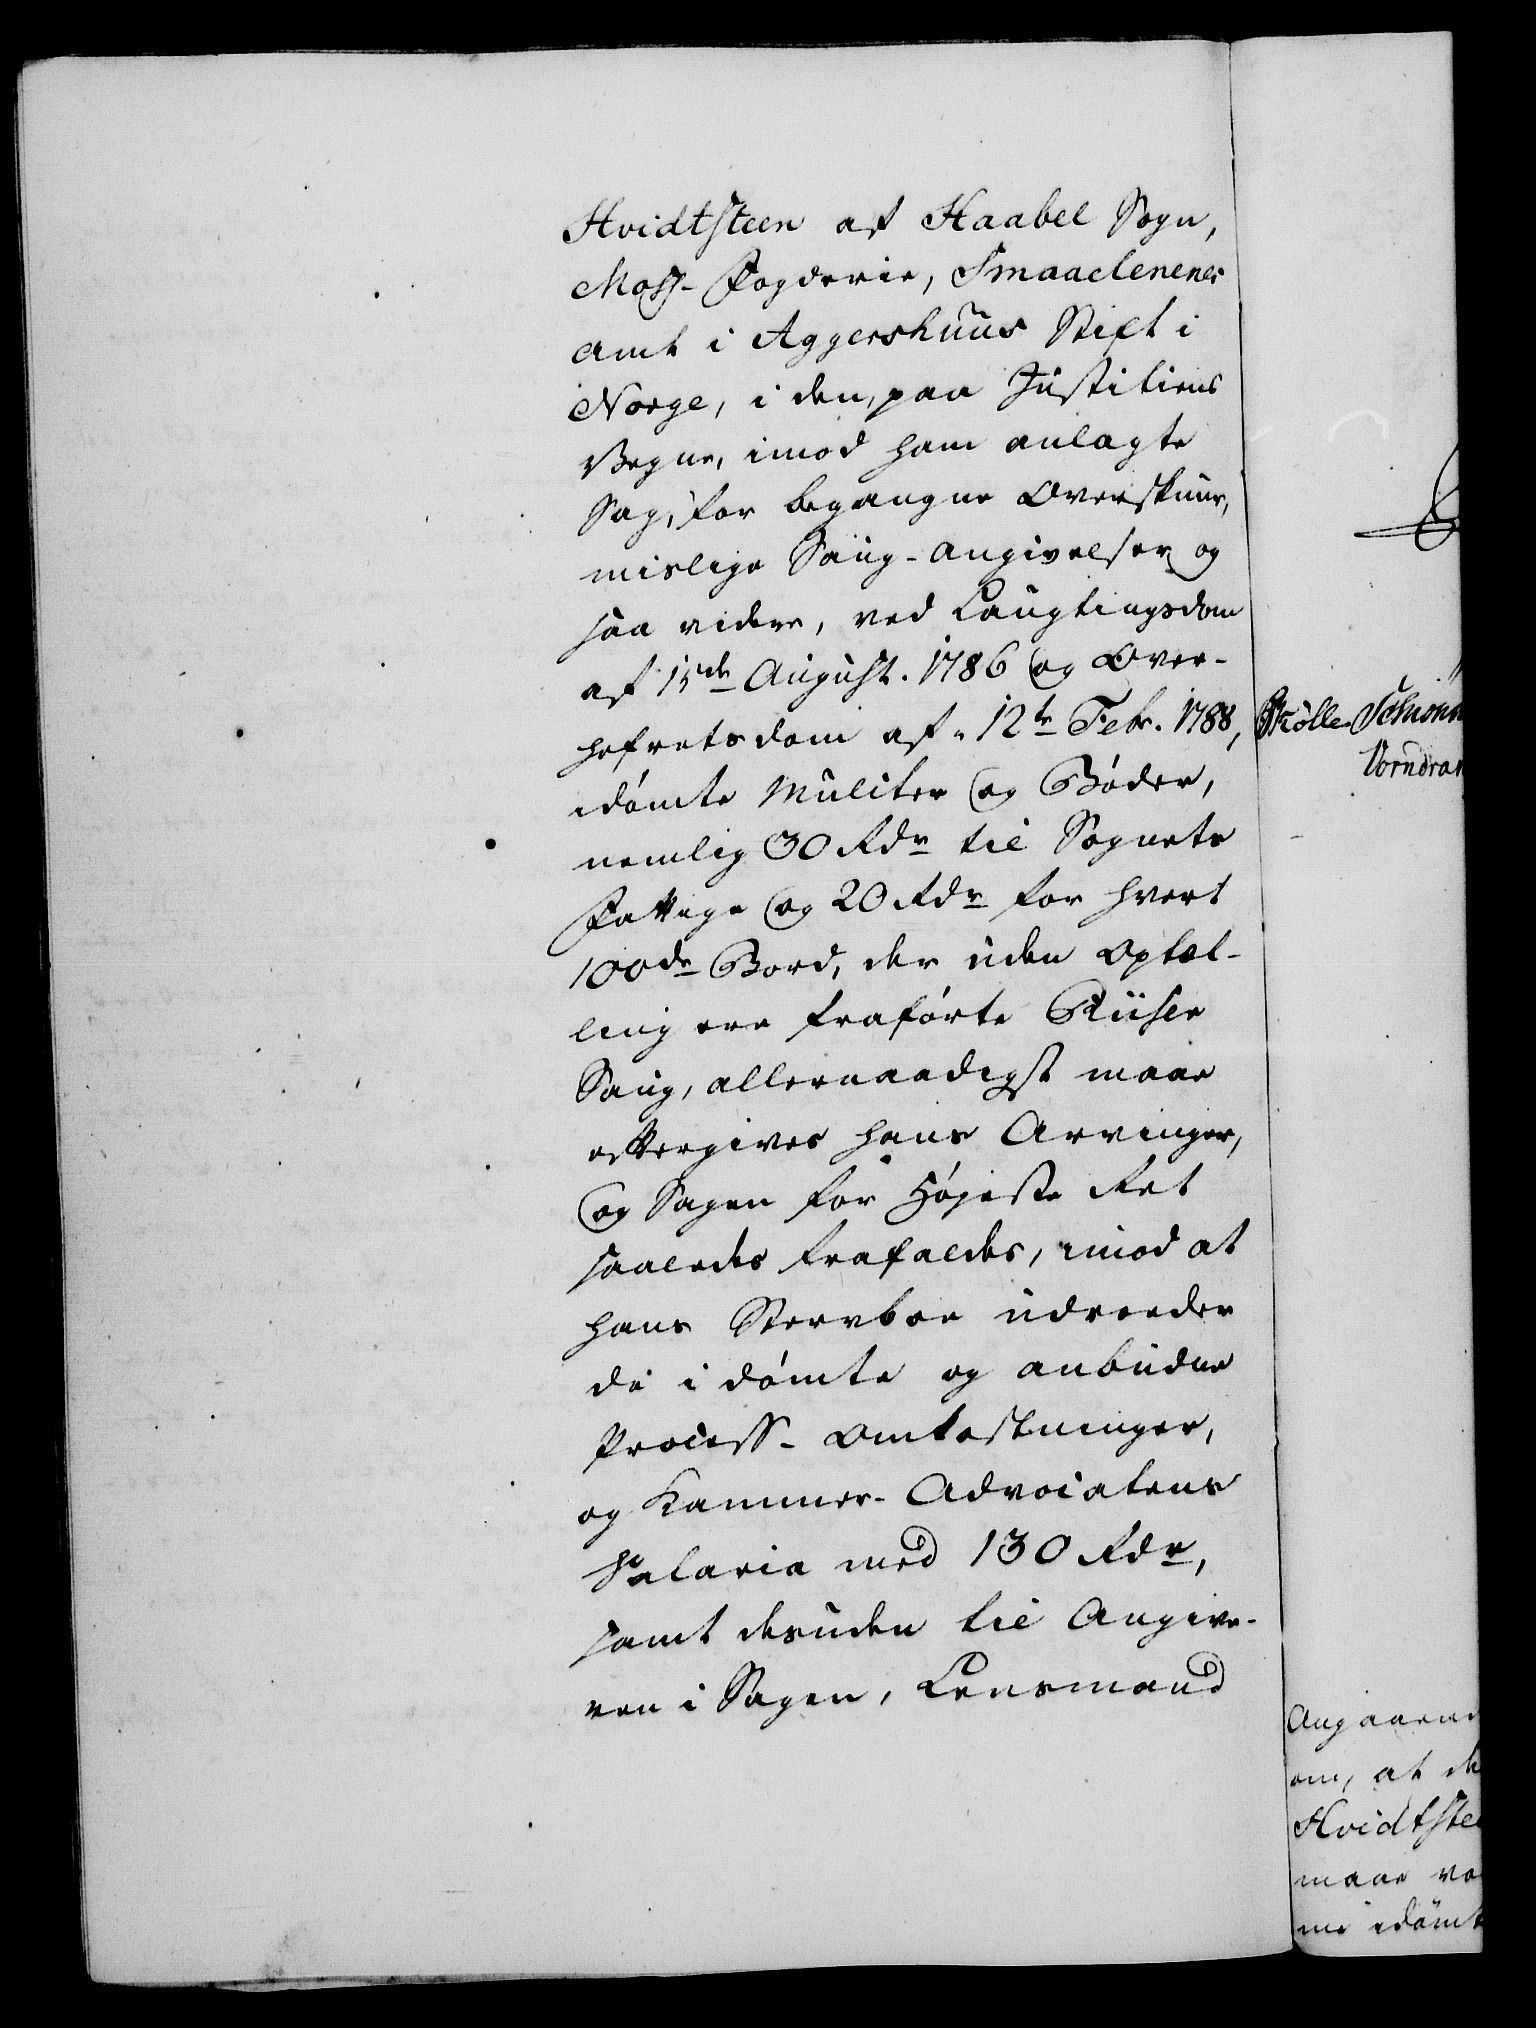 Hvidtsteen af Haabel Sogn,
Moss-Fogderie, Smaaelenenes
Amt i Aggershuus Stift i
Norge, i den, paa Justitiens
Vegne, imod ham anlagte
Sag, for begangne Overskuur,
mislige Saug-Angivelser og
saa videre, ved Laugtingsdom
af 15de August. 1786 og Over-
hofretsdom af 12te Febr. 1788,
idømte Mulcter og Bøder,
nemlig 30 Rdr til Sognets
Fattige og 20 Rdr for hvert
100de Bord, der uden Optæl-
ling ere fraførte Riiser
Saug, allernaadigst maae
eftergives hans Arvinger,
og Sagen for Høieste Ret
saaledes frafaldes, imod at
hans Stervboe udreeder
de i dømte og anbudne
Process-Omkostninger,
og Kammer-Advocatens
Salaria med 130 Rdr,
samt desuden til Angive-
ren i Sagen, Lensmand
Angaaend
om, at de
Hvidtste
maae
me idømt